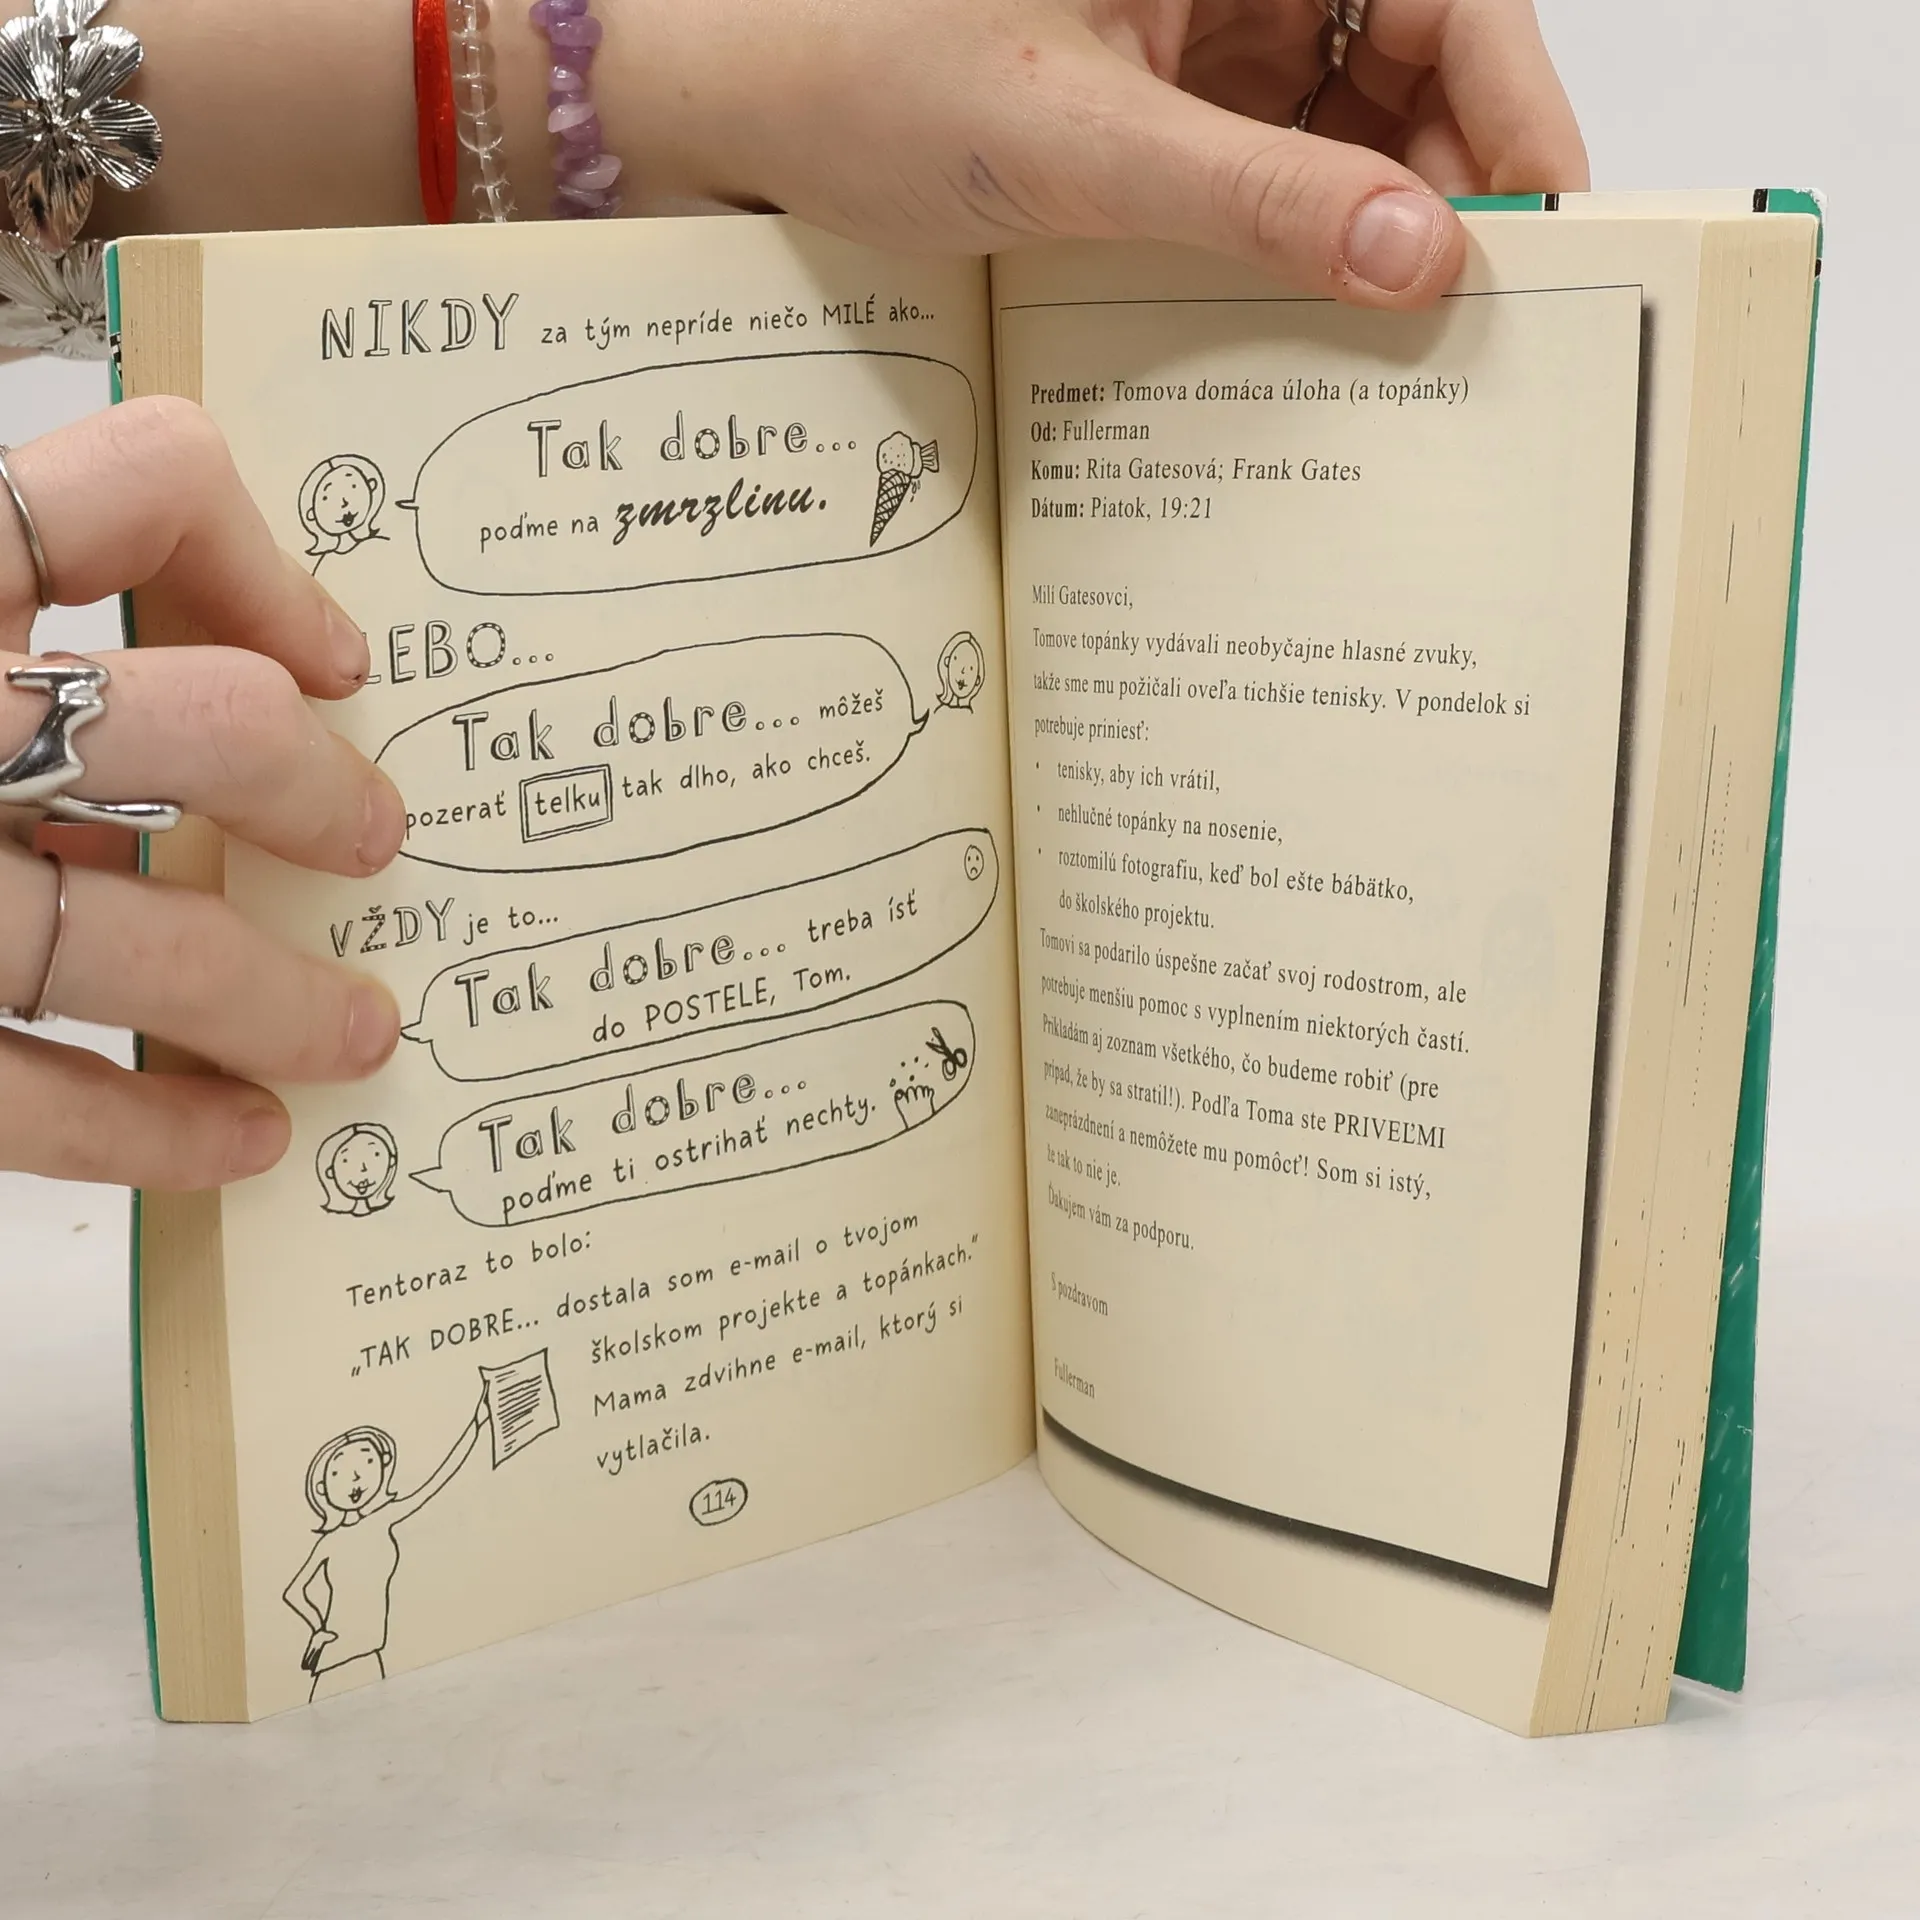 NIKDY za tým nepríde niečo MILÉ ako...
Tak dobre...
poďme na zmrzlinu.
LEBO...
Tak dobre... môžeš
pozerať telku tak dlho, ako chceš.
VŽDY je to...
Tak dobre... treba ísť
do POSTELE, Tom.
Tak dobre...
poďme ti ostrihať nechty.
Tentoraz to bolo:
„TAK DOBRE... dostala som e-mail o tvojom
školskom projekte a topánkach.“
Mama zdvihne e-mail, ktorý si
vytlačila.
114
Predmet: Tomova domáca úloha (a topánky)
Od: Fullerman
Komu: Rita Gatesová; Frank Gates
Dátum: Piatok, 19:21
Milí Gatesovci,
Tomove topánky vydávali neobyčajne hlasné zvuky,
takže sme mu požičali oveľa tichšie tenisky. V pondelok si
potrebuje priniesť:
• tenisky, aby ich vrátil,
• nehlučné topánky na nosenie,
• roztomilú fotografiu, keď bol ešte bábätko,
do školského projektu.
Tomovi sa podarilo úspešne začať svoj rodostrom, ale
potrebuje menšiu pomoc s vyplnením niektorých častí.
Prikladám aj zoznam všetkého, čo budeme robiť (pre
prípad, že by sa stratil!). Podľa Toma ste PRIVEĽMI
zaneprázdnení a nemôžete mu pomôcť! Som si istý,
že tak to nie je.
Ďakujem vám za podporu.
S pozdravom
Fullerman